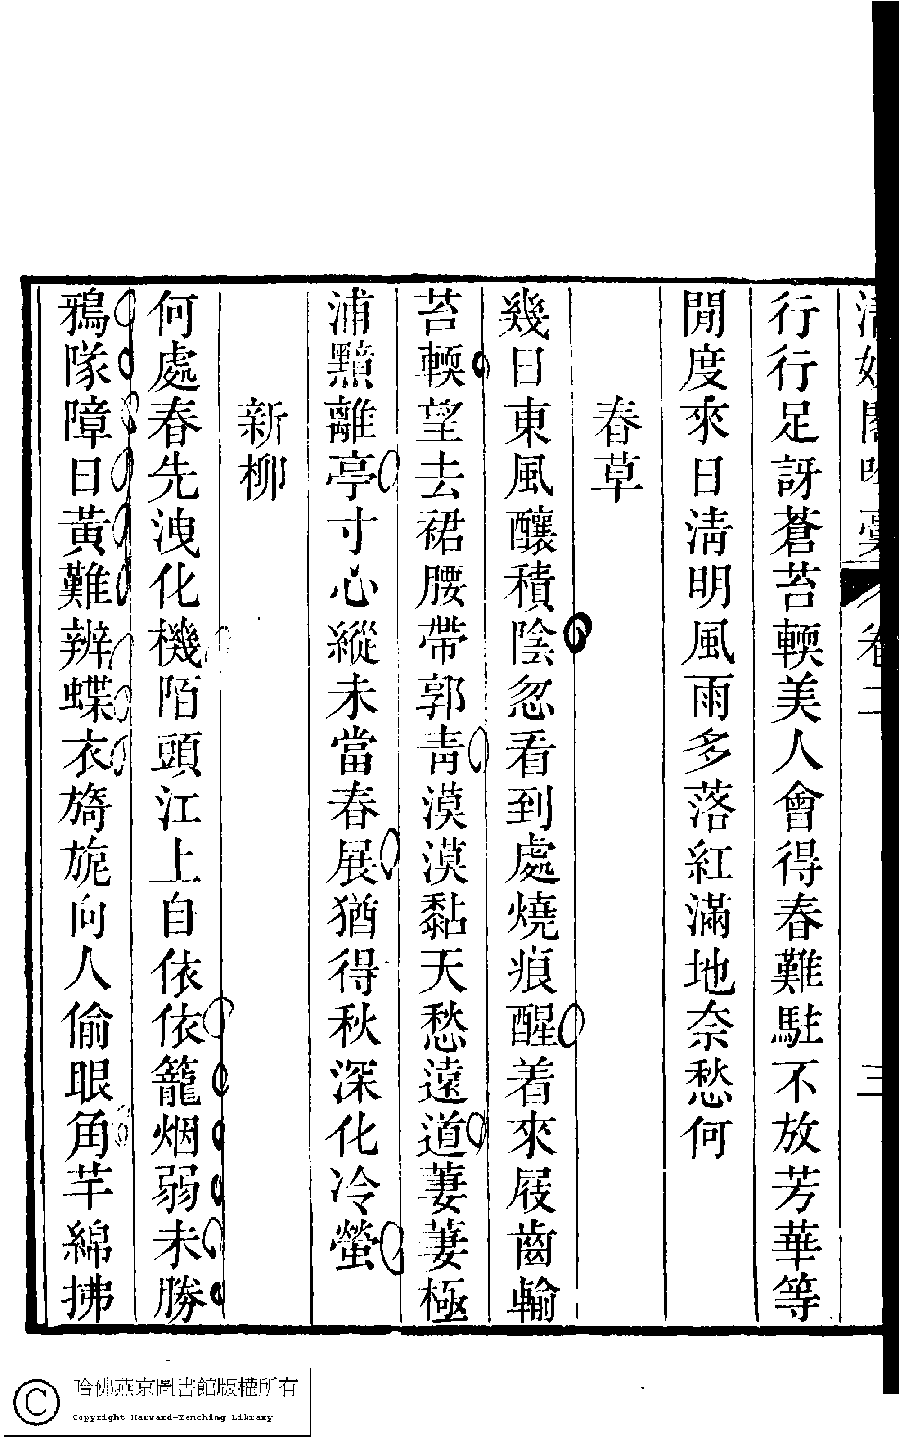 行行足訝蒼苔輭美人會得春難駐不放芳華等
閒度來日淸明風雨多落紅滿地奈愁何
春草
幾日東風釀積陰忽看到處燒痕醒着來屐齒輸
苔輭望去裙腰帶郭靑漠漠黏天愁遠道萋萋極
浦黯離亭寸心縱未當春展猶得秋深化冷螢
新柳
何處春先洩化機陌頭江上自依依籠烟弱未勝
鴉隊障日黃難辨蝶衣旖旎向人偷眼角芊綿拂
卷二
三
哈佛燕京圖書館版權所有
Copyright Harvard-Yenching Library